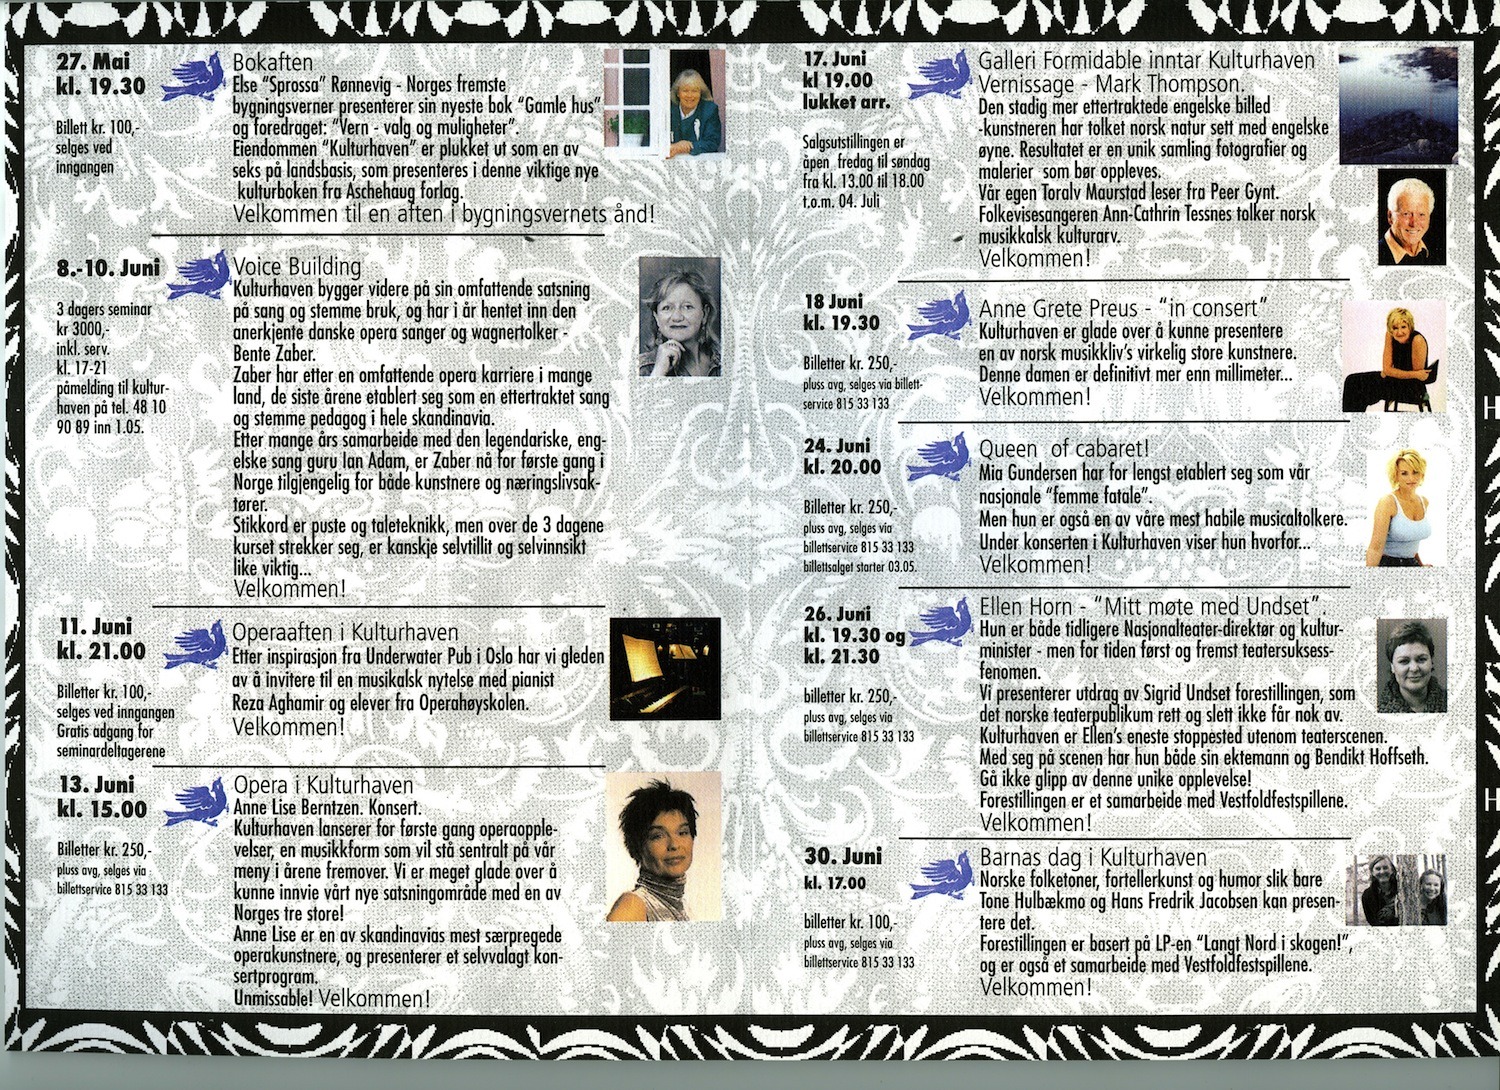 27. Mai
kl. 19.30
Billett kr. 100,-
selges ved
inngangen
Bokaften
Else "Sprossa" Rønnevig - Norges fremste
bygningsverner presenterer sin nyeste bok "Gamle hus"
og foredraget: "Vern - valg og muligheter".
Eiendommen "Kulturhaven" er plukket ut som en av
seks på landsbasis, som presenteres i denne viktige nye
kulturboken fra Aschehaug forlag.
Velkommen til en aften i bygningsvernets ånd!
8.-10. Juni
3 dagers seminar
kr 3000,-
inkl. serv.
kl. 17-21
påmelding til kultur-
haven på tel. 48 10
90 89 inn 1.05.
Voice Building
Kulturhaven bygger videre på sin omfattende satsning
på sang og stemme bruk, og har i år hentet inn den
anerkjente danske opera sanger og wagnertolker -
Bente Zaber.
Zaber har etter en omfattende opera karriere i mange
land, de siste årene etablert seg som en ettertraktet sang
og stemme pedagog i hele skandinavia.
Etter mange års samarbeide med den legendariske, eng-
elske sang guru Ian Adam, er Zaber nå for første gang i
Norge tilgjengelig for både kunstnere og næringslivsak-
tører.
Stikkord er puste og taleteknikk, men over de 3 dagene
kurset strekker seg, er kanskje selvtillit og selvinnsikt
like viktig...
Velkommen!
11. Juni
kl. 21.00
Billetter kr. 100,-
selges ved inngangen
Gratis adgang for
seminardeltagerene
Operaaften i Kulturhaven
Etter inspirasjon fra Underwater Pub i Oslo har vi gleden
av å invitere til en musikalsk nytelse med pianist
Reza Aghamir og elever fra Operahøyskolen.
Velkommen!
13. Juni
kl. 15.00
Billetter kr. 250,-
pluss avg, selges via
billettservice 815 33 133
Opera i Kulturhaven
Anne Lise Berntzen. Konsert.
Kulturhaven lanserer for første gang operaopple-
velser, en musikkform som vil stå sentralt på vår
meny i årene fremover. Vi er meget glade over å
kunne innvie vårt nye satsningområde med en av
Norges tre store!
Anne Lise er en av skandinavias mest særpregede
operakunstnere, og presenterer et selvvalagt kon-
sertprogram.
Unmissable! Velkommen!
17. Juni
kl 19.00
lukket arr.
Salgsutstillingen er
åpen fredag til søndag
fra kl. 13.00 til 18.00
t.o.m. 04. Juli
Galleri Formidable inntar Kulturhaven
Vernissage - Mark Thompson.
Den stadig mer ettertraktede engelske billed
-kunstneren har tolket norsk natur sett med engelske
øyne. Resultatet er en unik samling fotografier og
malerier som bør oppleves.
Vår egen Toralv Maurstad leser fra Peer Gynt.
Folkevisesangeren Ann-Cathrin Tessnes tolker norsk
musikkalsk kulturarv.
Velkommen!
18 Juni
kl. 19.30
Billetter kr. 250,-
pluss avg, selges via billett-
service 815 33 133
Anne Grete Preus - "in consert"
Kulturhaven er glade over å kunne presentere
en av norsk musikkliv's virkelig store kunstnere.
Denne damen er definitivt mer enn millimeter...
Velkommen!
24. Juni
kl. 20.00
Billetter kr. 250,-
pluss avg, selges via
billettservice 815 33 133
billettsalget starter 03.05.
Queen of cabaret!
Mia Gundersen har for lengst etablert seg som vår
nasjonale "femme fatale".
Men hun er også en av våre mest habile musicaltolkere.
Under konserten i Kulturhaven viser hun hvorfor...
Velkommen!
26. Juni
kl. 19.30 og
kl. 21.30
billetter kr. 250,-
pluss avg, selges via
billettservice 815 33 133
Ellen Horn - "Mitt møte med Undset".
Hun er både tidligere Nasjonalteater-direktør og kultur-
minister - men for tiden først og fremst teatersuksess-
fenomen.
Vi presenterer utdrag av Sigrid Undset forestillingen, som
det norske teaterpublikum rett og slett ikke får nok av.
Kulturhaven er Ellen's eneste stoppested utenom teaterscenen.
Med seg på scenen har hun både sin ektemann og Bendikt Hoffseth.
Gå ikke glipp av denne unike opplevelse!
Forestillingen er et samarbeide med Vestfoldfestspillene.
Velkommen!
30. Juni
kl. 17.00
billetter kr. 100,-
pluss avg, selges via
billettservice 815 33 133
Barnas dag i Kulturhaven
Norske folketoner, fortellerkunst og humor slik bare
Tone Hulbækmo og Hans Fredrik Jacobsen kan presen-
tere det.
Forestillingen er basert på LP-en "Langt Nord i skogen!",
og er også et samarbeide med Vestfoldfestspillene.
Velkommen!
H
H